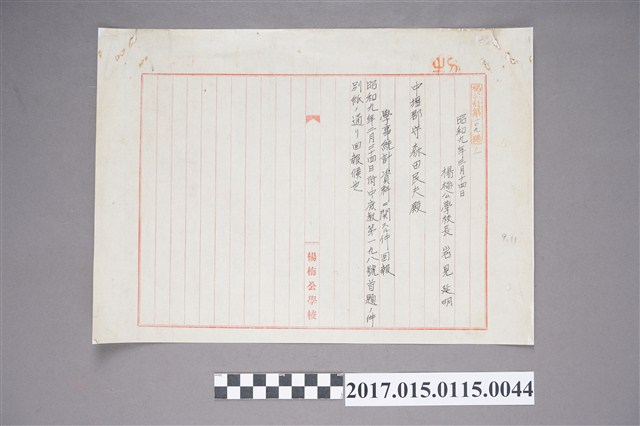 昭和九年三月十四日
楊梅公學校長 岩見 延明
中壢郡守 森田民夫殿
學事統計資料ニ関スル件回報
昭和九年三月三十四日附中庶教第一九八號首題ノ件
別紙ノ通リ回報候也
楊梅公學校
2017.015.0115.0044